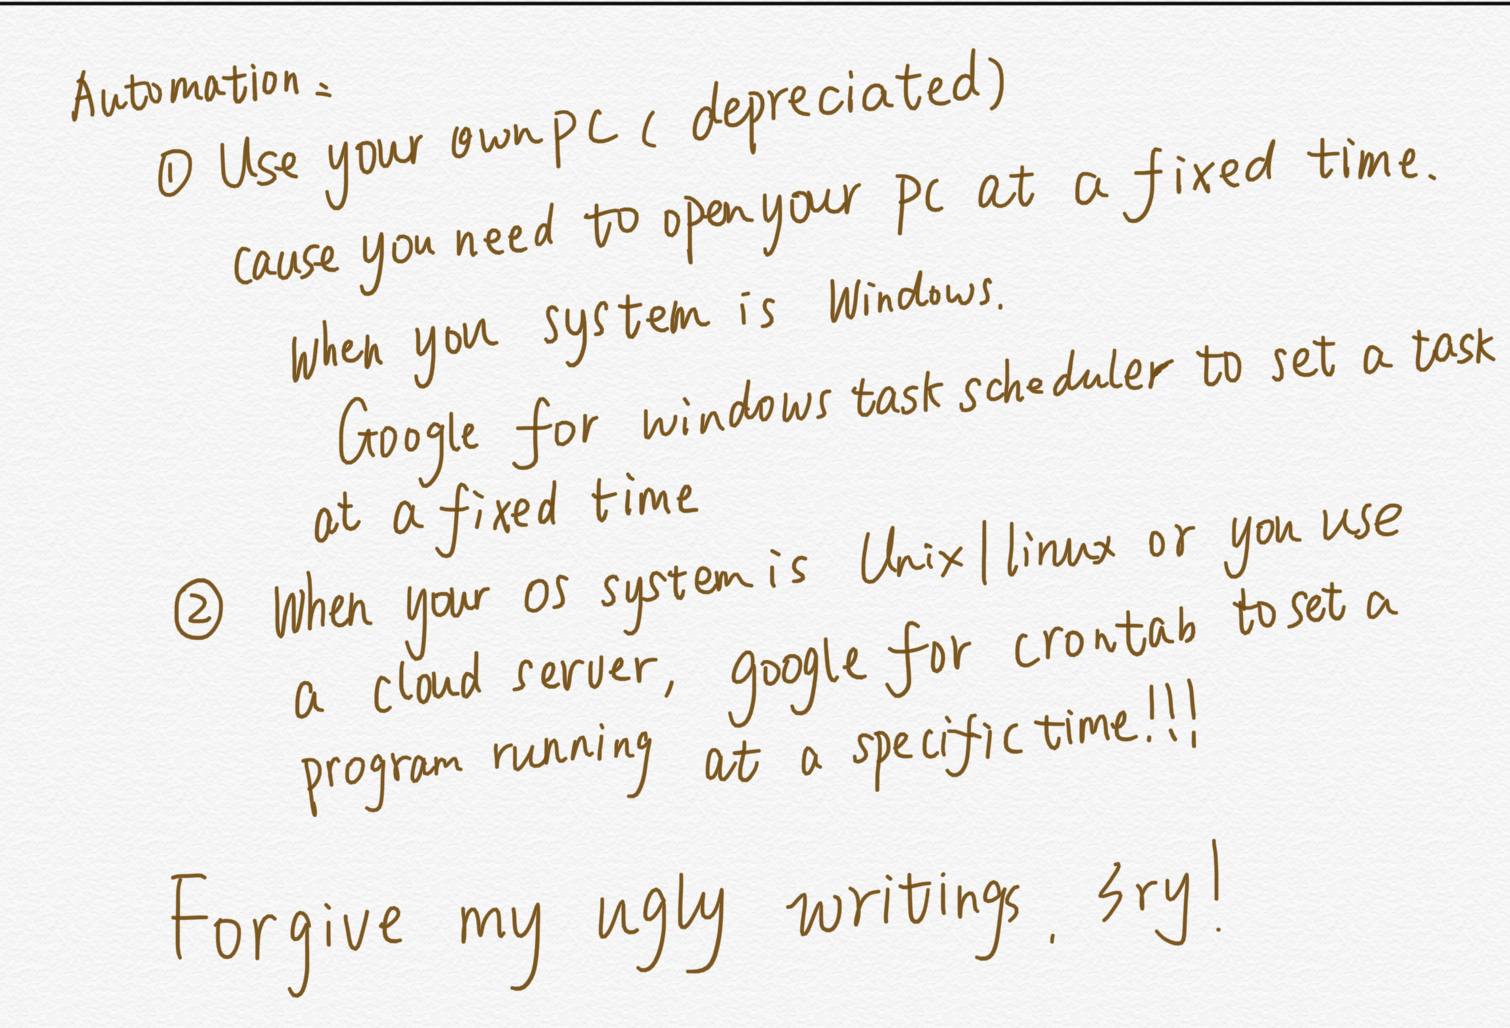 Automation:
① Use your own PC ( depreciated)
cause you need to open your PC at a fixed time.
When you system is Windows.
Google for windows task scheduler to set a task
at a fixed time
② When your OS system is Unix|linux or you use
a cloud server, google for crontab to set a
program running at a specific time!!!
Forgive my ugly writings, Sry!